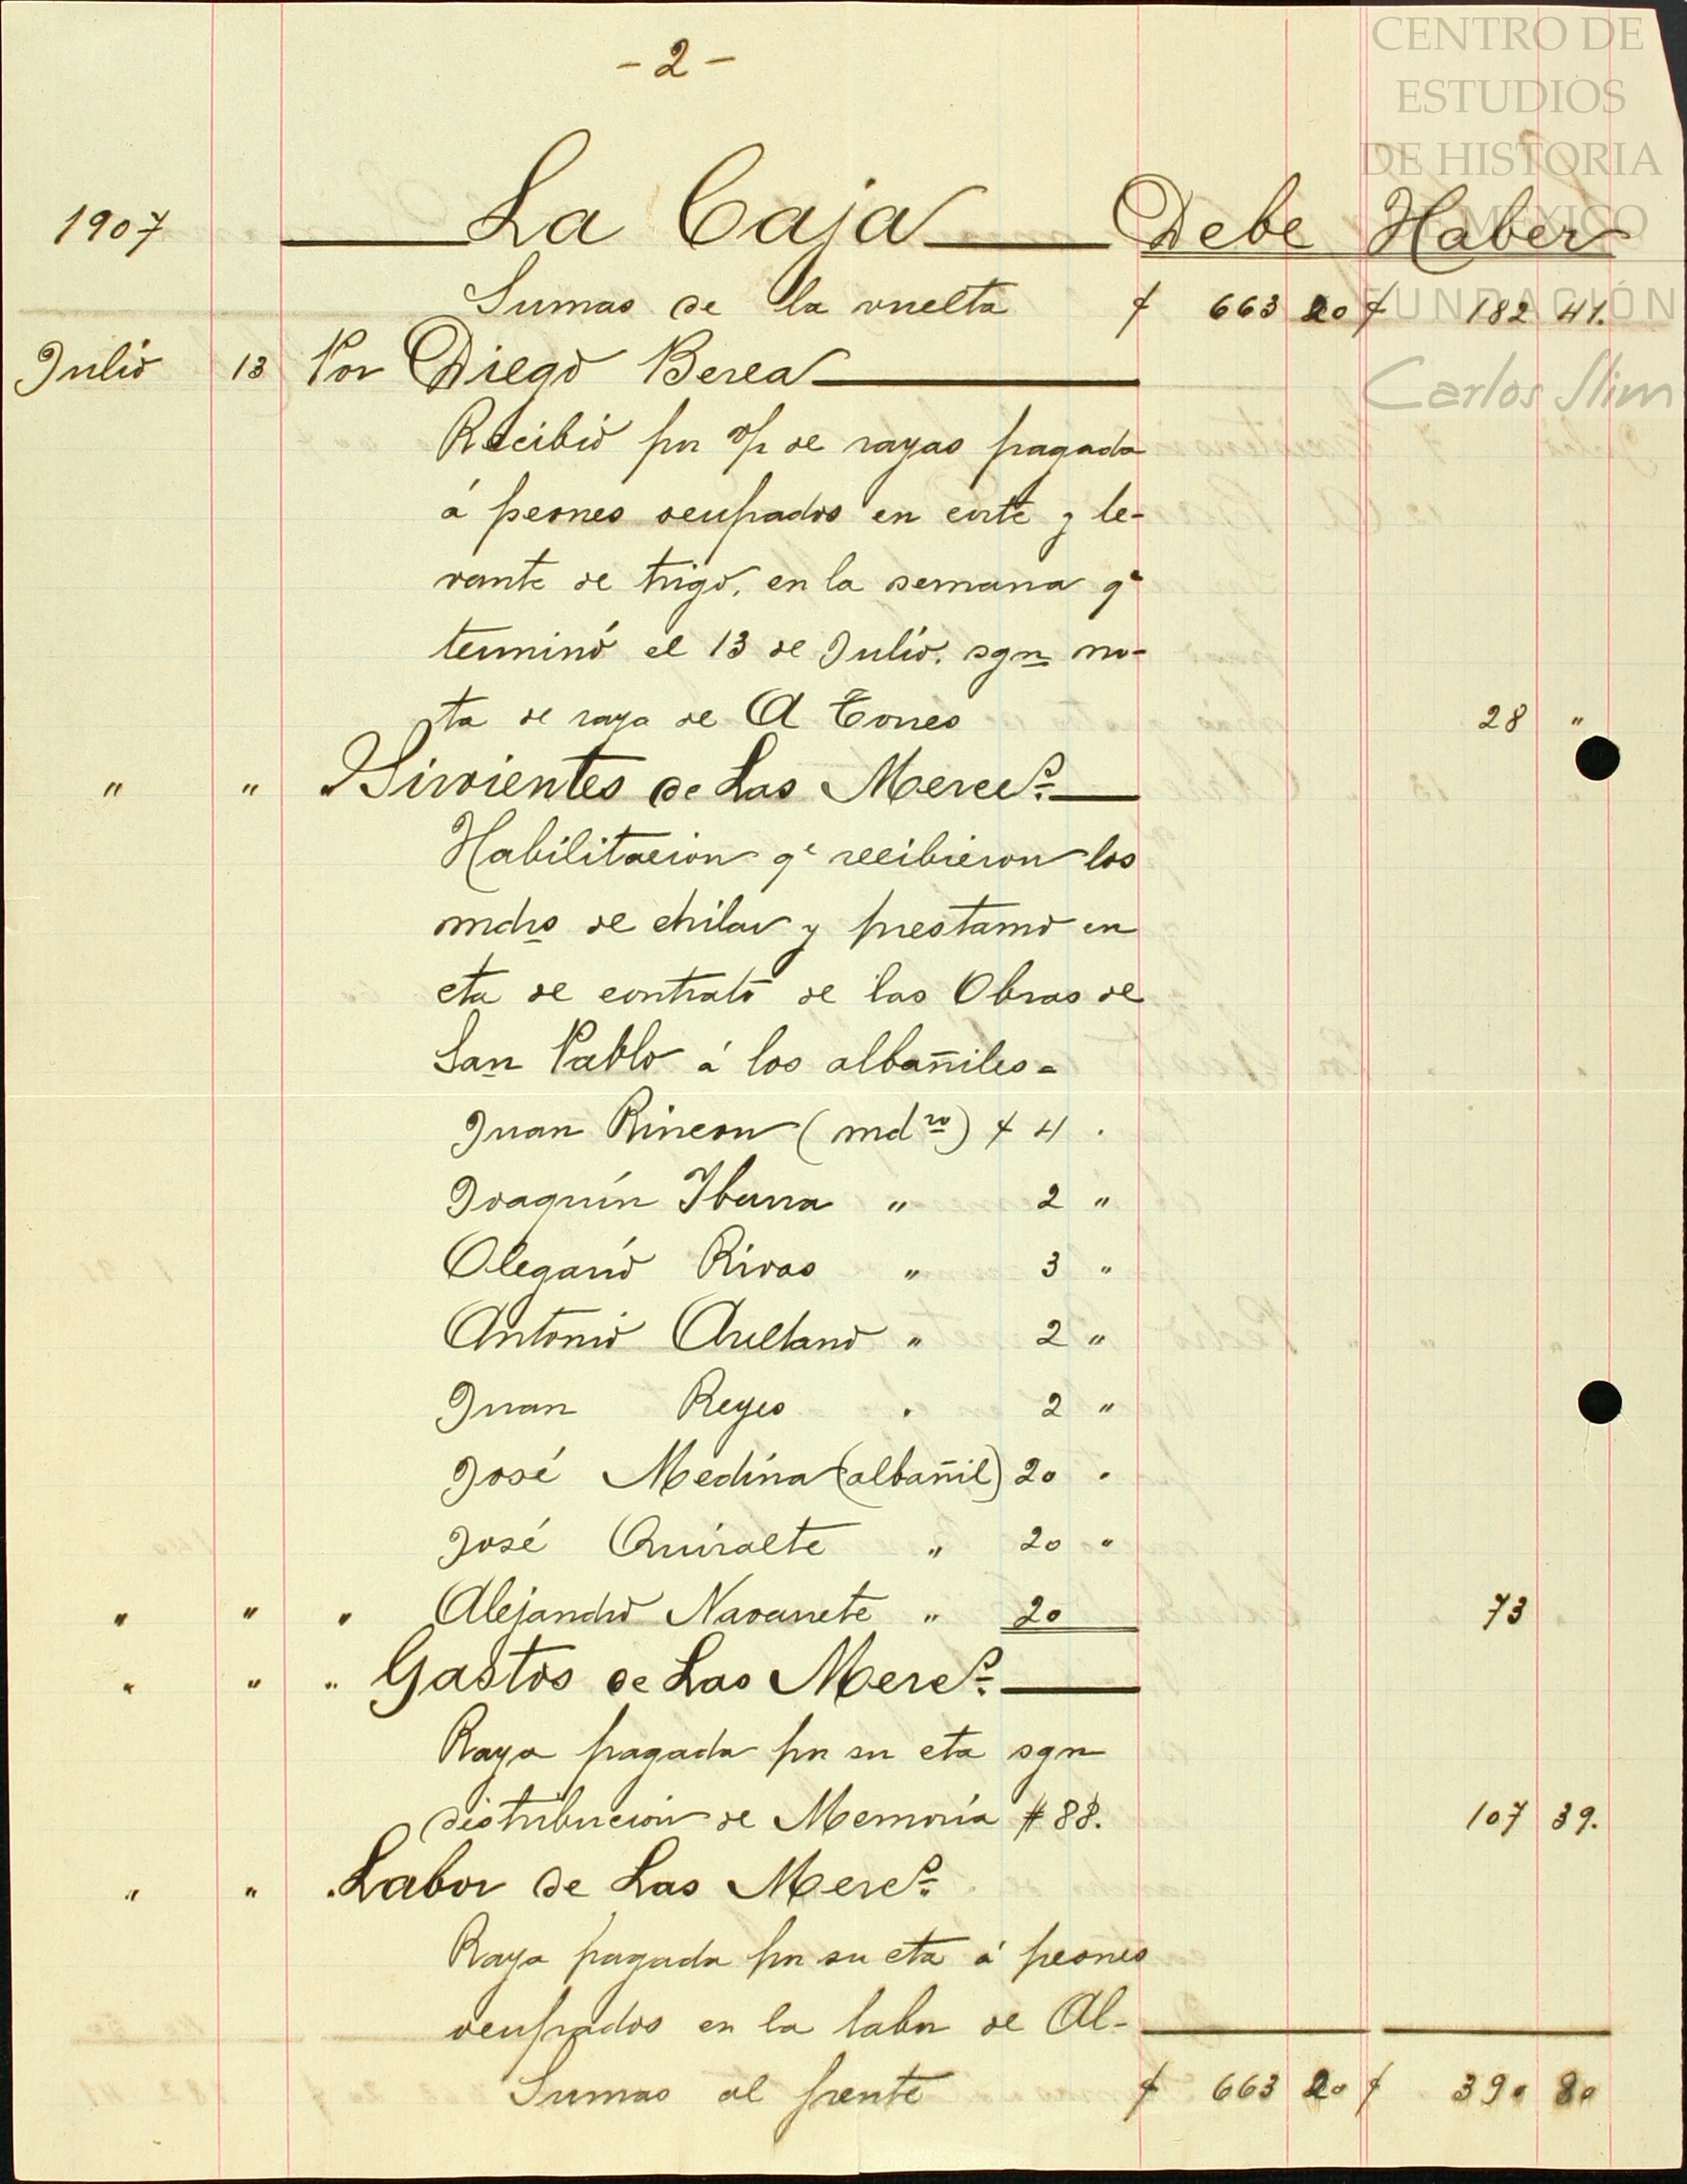 CENTRO DE
ESTUDIOS
DE HISTORIA
DE MÉXICO
FUNDACIÓN
Carlos Slim
- 2 -
1907 La Caja Debe Haber
Sumas de la vuelta $ 663 20 $ 182 41.
Julio 13 Por Diego Berea
Recibió pr o/p de rayas pagada
á peones ocupados en corte y le-
vante de trigo, en la semana qe
terminó el 13 de Julio. sgn no-
ta de raya de A Torres 28 "
" " " Sirvientes de Las Merces.
Habilitacion qe recibieron los
mdros de chilar y prestamo en
cta de contrato de las Obras de
San Pablo á los albañiles =
Juan Rincon (mdro) $ 4 .
Joaquín Ibarra " 2 "
Olegario Rivas " 3 "
Antonio Arellano " 2 "
Juan Reyes . 2 "
José Medina (albañil) 20 .
José Quiralte " 20 "
" " " Alejandro Navarrete " 20 73
" " " Gastos de Las Mercs.
Raya pagada pr su cta sgn
distribución de Memoria # 88. 107 39.
" " . Labor de Las Mercs.
Raya pagada pr su cta á peones
ocupados en la labor de Al-
Sumas al frente $ 663 20 $ 390 80